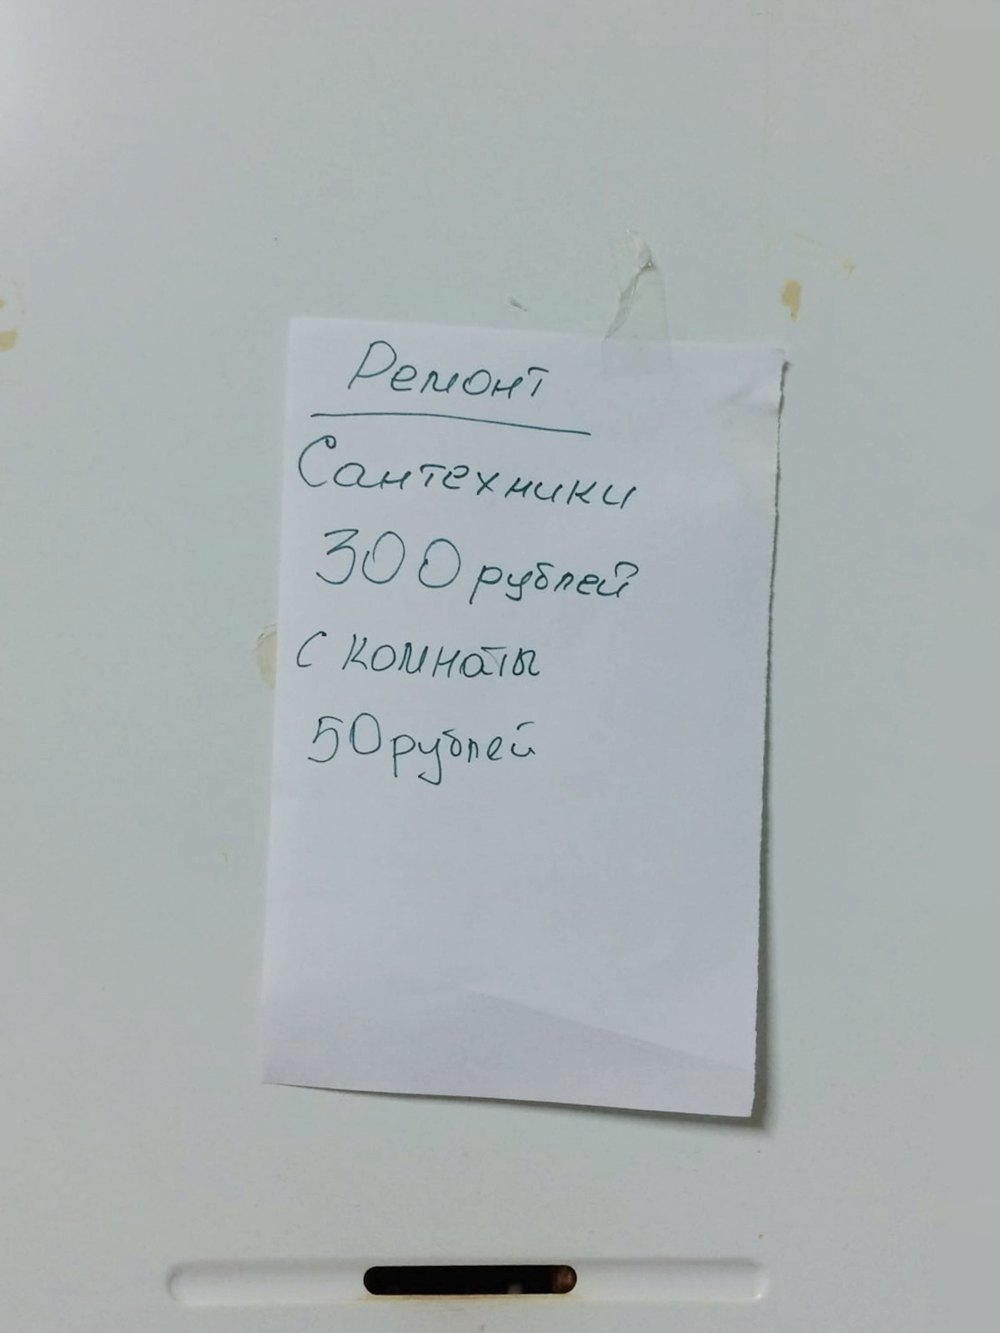 Ремонт
Сантехники
300 рублей
с комнаты
50 рублей